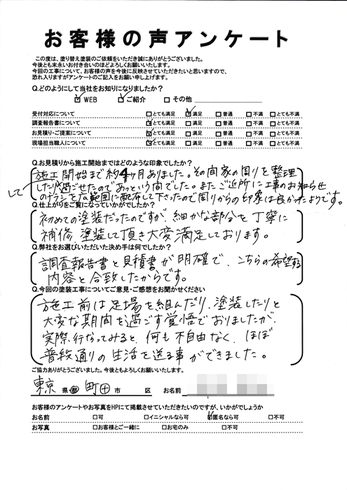 お客様の声アンケート
この度は、塗り替え塗装のご依頼をいただき誠にありがとうございました。
今後とも末永いお付き合いのほどよろしくお願いいたします。
今回の工事について、お客様の声を今後に反映させていただきたいと思いますので、
恐れ入りますがアンケートのご記入をお願い申し上げます。
Q.どのようにして当社をお知りになりましたか？
☑WEB ☑ご紹介 □その他
受付対応について ☑とても満足 ☑満足 □普通 □不満 □とても不満
調査報告書について ☑とても満足 □満足 □普通 □不満 □とても不満
お見積り・ご提案について ☑とても満足 □満足 □普通 □不満 □とても不満
現場担当職人について ☑とても満足 □満足 □普通 □不満 □とても不満
Q.お見積から施工開始まではどのような印象でしたか？
施工開始まで約4ヶ月ありました。その間家の周りを整理
したり過ごせたので あっという間でした。またご近所に工事のお知らせ
のチラシを広範囲に配布して下さったので周りからの印象は良かったようです。
Q.仕上がりをご覧になっていかがでしたか？
初めての塗装だったのですが、細かな部分を丁寧に
補修、塗装して頂き大変満足しております。
Q.弊社をお選びいただいた決め手は何でしたか？
調査報告書と見積書が明確で、こちらの希望する
内容と合致したからです。
Q.今回の塗装工事についてご意見・ご感想をお聞かせください
施工前は足場を組んだり、塗装したりと
大変な期間を過ごす覚悟でおりましたが、
実際行なってみると、何も不自由なく、ほぼ
普段通りの生活を送る事ができました。
ご協力ありがとうございました。今後ともよろしくお願いいたします。
東京 県 町田 市 区 お名前
お客様のアンケートやお写真をHPにて掲載させていただきたいのですが、いかがでしょうか
お名前 □可 □イニシャルなら可 ☑匿名なら可 □不可
お写真 □お客様とご一緒に □お宅のみ □不可